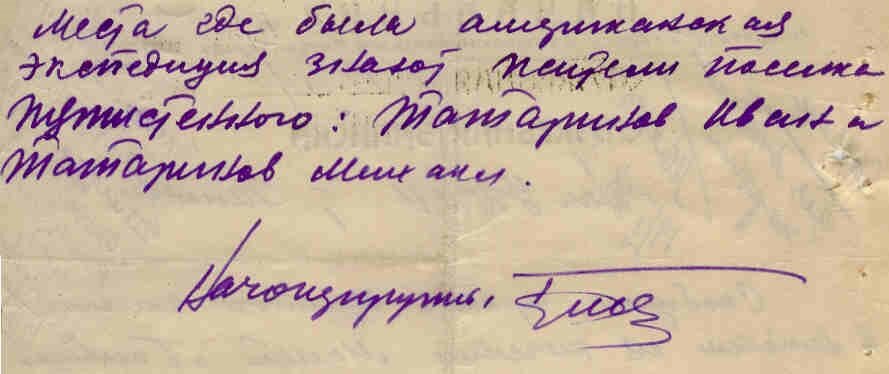 Места где была американская
экспедиция знают жители поселка
: Татаринов Иван и
Татаринов Михаил.